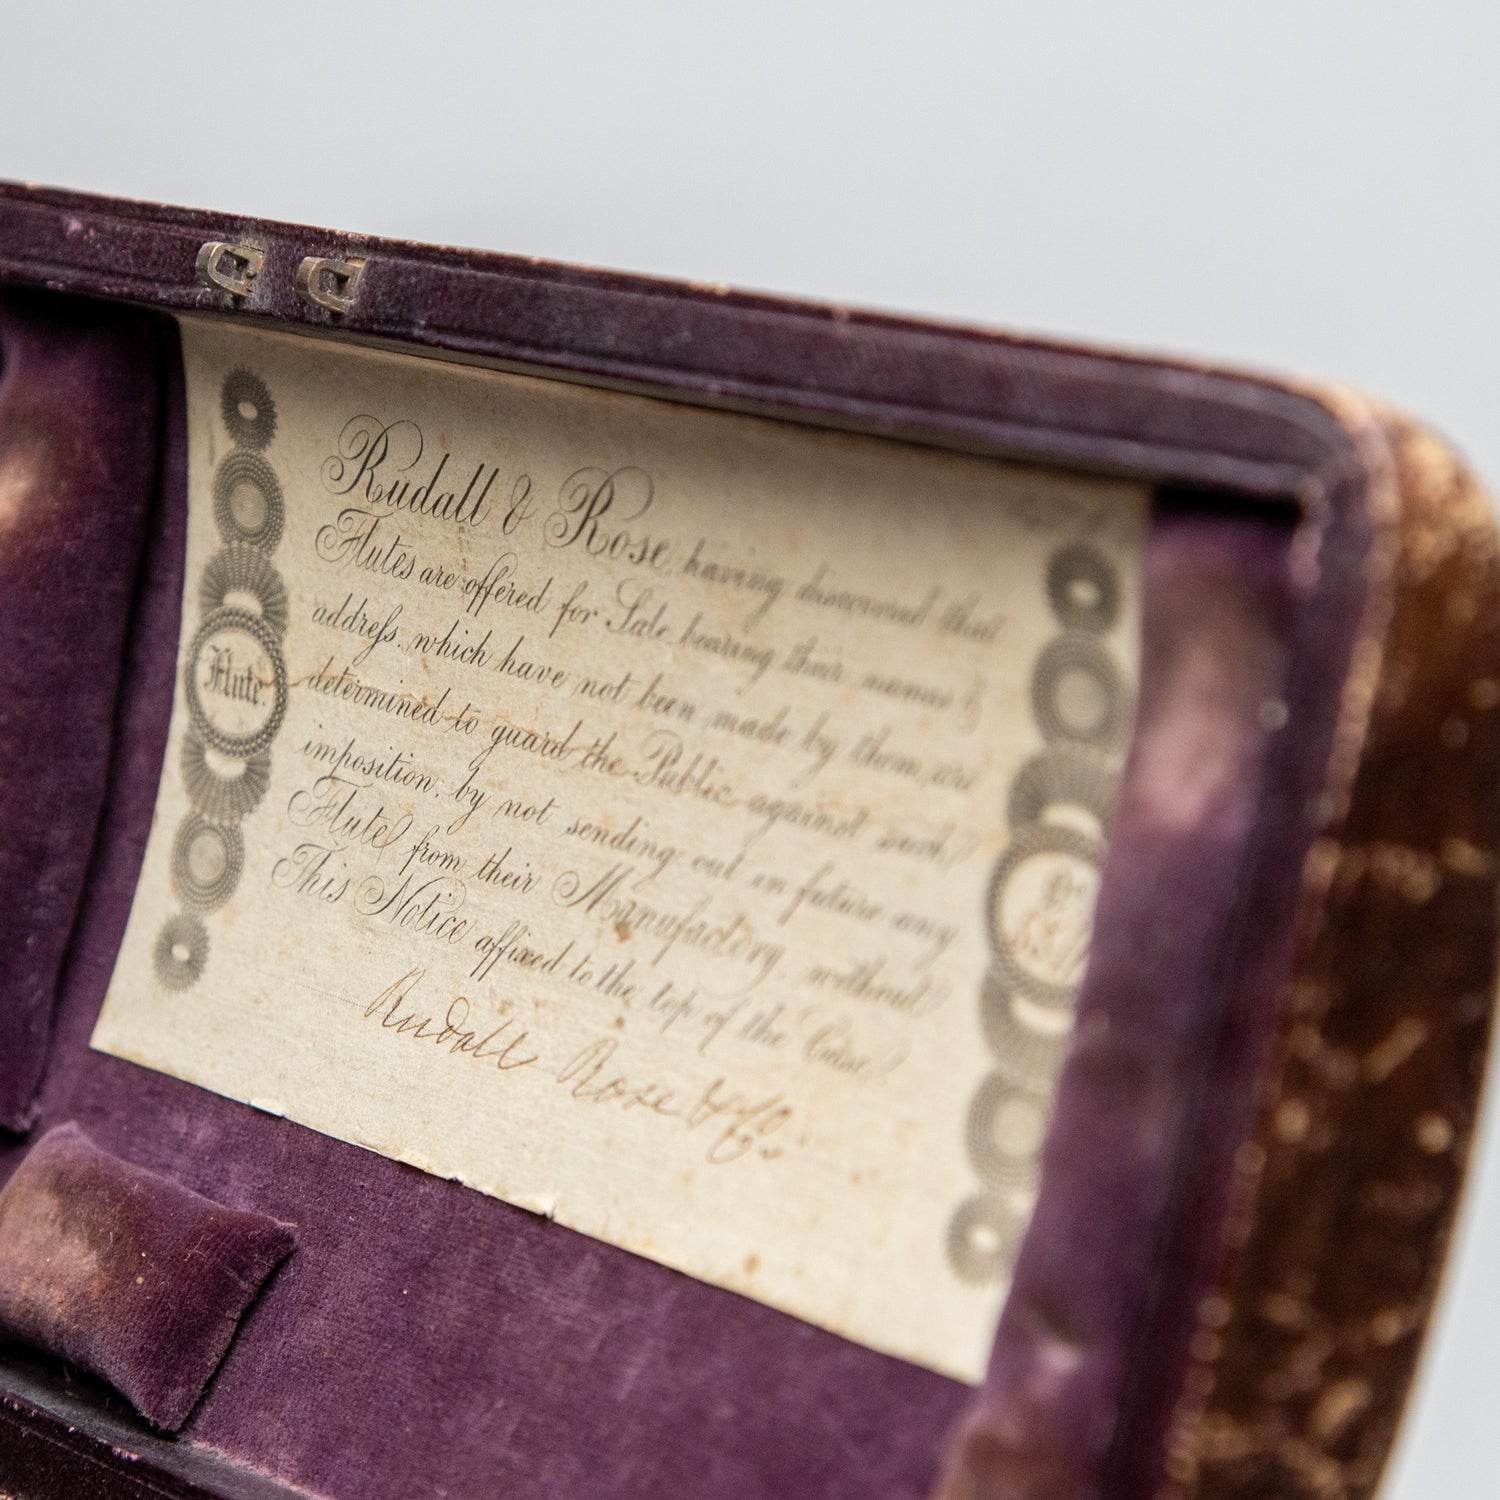 Rudall & Rose having discovered that
Flutes are offered for Sale, bearing their names &
addreſs, which have not been made by them, are
determined to guard the Public against such
imposition, by not sending out in future any
Flute, from their Manufactory, without
This Notice affixed to the top of the Case.
Rudall Rose & Co.
Flute.
No.